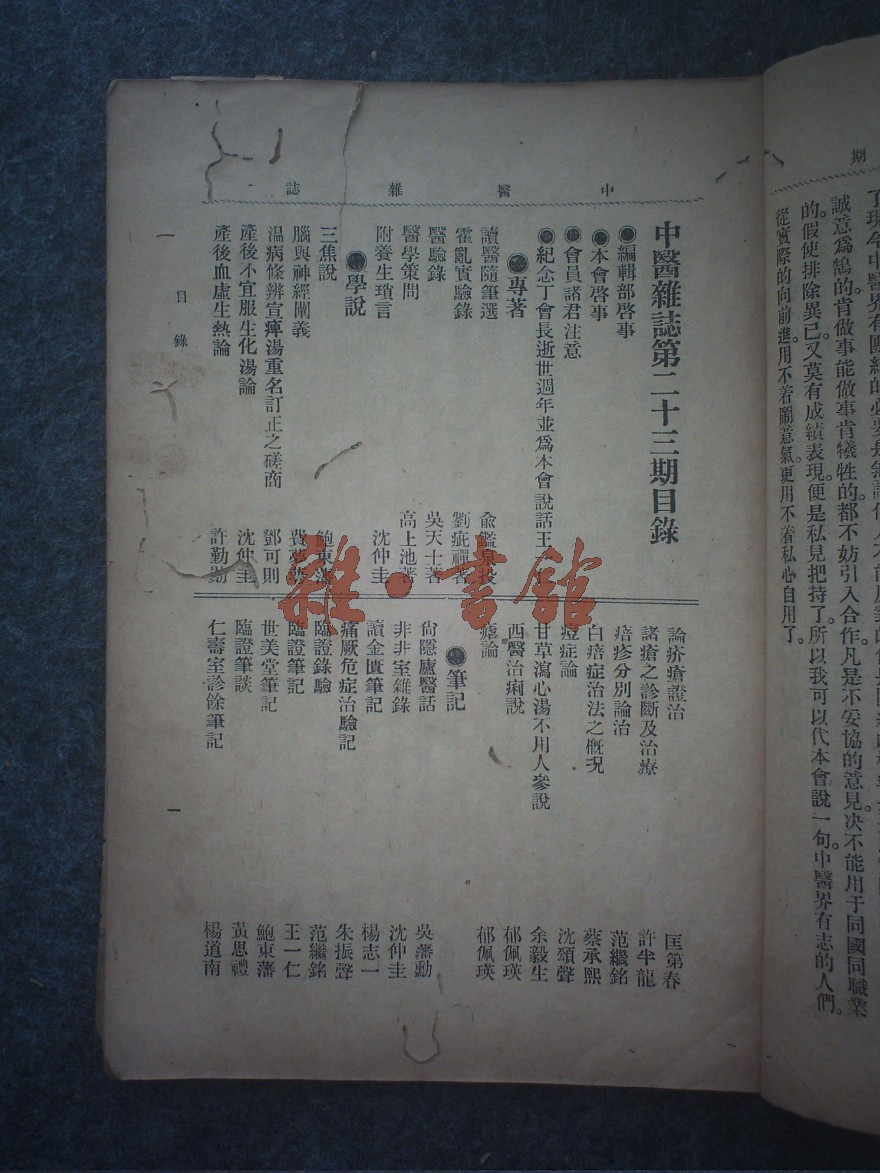 期
誠意爲鵠的肯做事能做事肯犧牲的都不妨引入合作凡是不妥協的意見決不能用于同國同職業
的假使排除異己又莫有成績表現便是私見把持了所以我可以代本會說一句中醫界有志的人們
從實際的向前進用不着鬧意氣更用不着私心自用了
中醫雜誌
中醫雜誌第二十三期目錄
●編輯部啓事
●本會啓事
●會員諸君注意
●紀念丁會長逝世週年並爲本會說話 王
●專著
讀醫隨筆選
霍亂實驗錄
醫驗錄 吳天士著
醫學策問 高上池著
附養生瑣言 沈仲圭
●學說
三焦說 鮑東藩
腦與神經闡義
溫病條辨宣痺湯重名訂正之磋商 鄧可則
產後不宜服生化湯論 沈仲圭
產後血虛生熱論 許勤勛
論疥瘡證治 匡第春
諸瘡之診斷及治療 許半龍
痦疹分別論治 范繼銘
白痦症治法之概況 蔡承熙
痙症論 沈頌聲
甘草瀉心湯不用人參說 余毅生
西醫治痢說 郁佩瑛
瘧論 郁佩瑛
●筆記
尙隱廬醫話 吳藩勳
非非室雜錄 沈仲圭
讀金匱筆記 楊志一
痛厥危症治驗記 朱振聲
臨證錄驗 范繼銘
臨證筆記 王一仁
世美堂筆記 鮑東藩
臨證筆談 黃思禮
仁壽室診餘筆記 楊道南
目錄
一
雜·書館